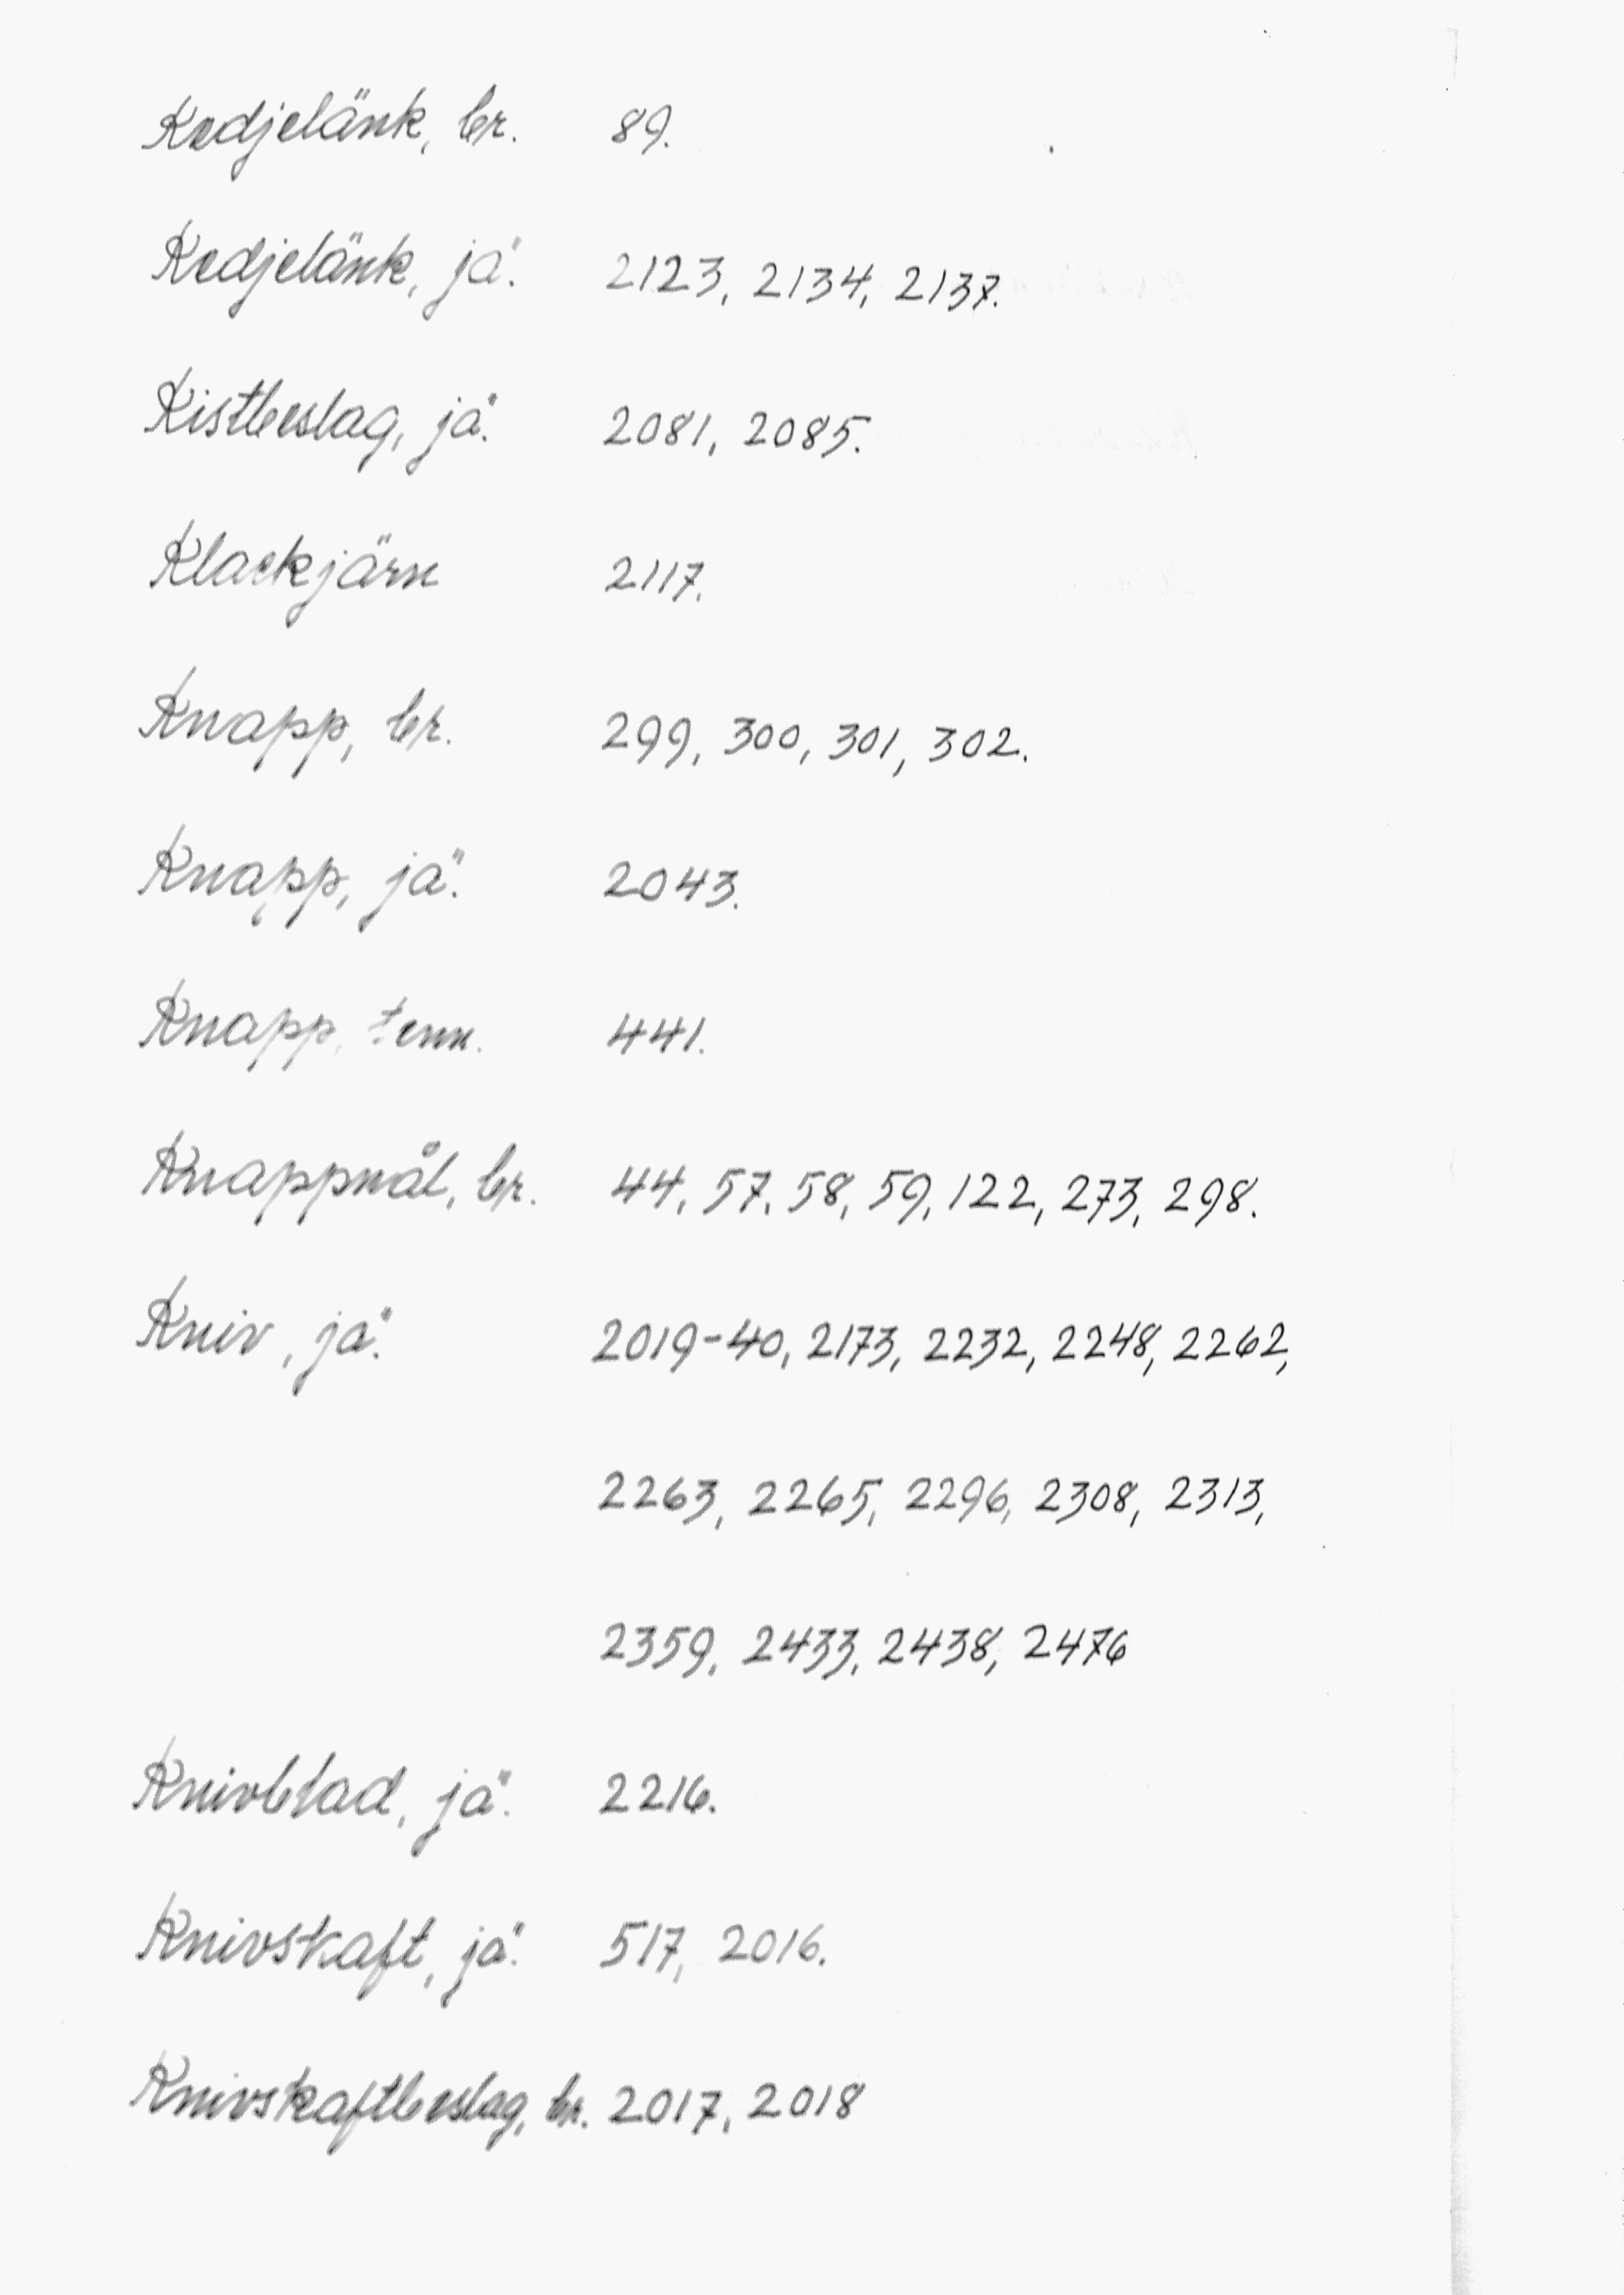 Kedjelänk, br. 89.
Kedjelänk, jä. 2123, 2134, 2137.
Kistbeslag, jä. 2081, 2085.
Klackjärn 2117.
Knapp, br. 299, 300, 301, 302.
Knapp, jä. 2043.
Knapp, tenn. 441.
Knappnål, br. 44, 57, 58, 59, 122, 273, 298.
Kniv, jä. 2019-40, 2173, 2232, 2248, 2262,
2263, 2265, 2296, 2308, 2313,
2359, 2433, 2438, 2476
Knivblad, jä. 2216.
Knivskaft, jä. 517, 2016.
Knivskaftbeslag, br. 2017, 2018